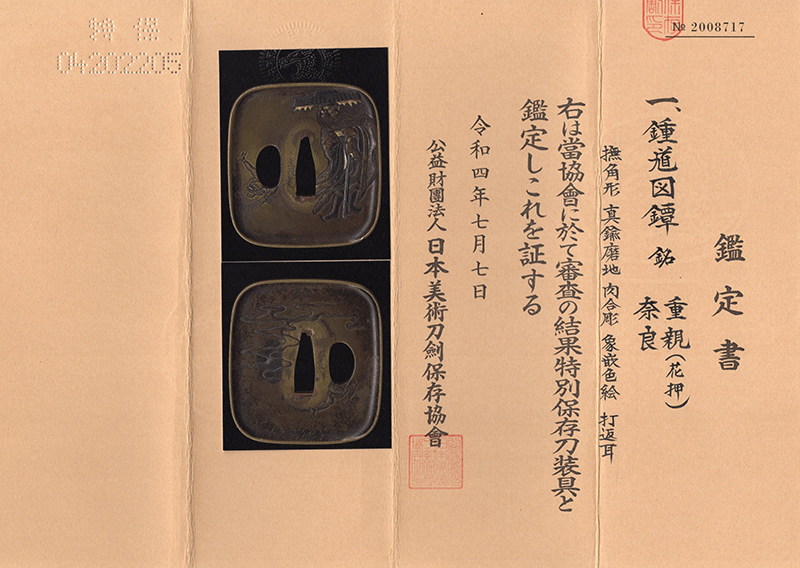 № 2008717
鑑定書
一、鍾馗図鐔 銘 重親(花押)
奈良
撫角形 真鍮磨地 肉合彫 象嵌色絵 打返耳
右は當協會に於て審査の結果特別保存刀装具と
鑑定しこれを証する
令和四年七月七日
公益財團法人 日本美術刀劍保存協會
特保
04202205